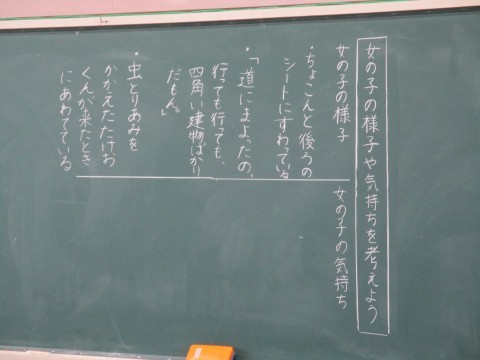 女の子の様子や気持ちを考えよう
女の子の様子
・ちょこんと後ろの
シートにすわっている
・「道にまよったの。
行っても行っても、
四角い建物ばかり
だもん。」
・虫とりあみを
かかえたたけお
くんが来たとき
にあわてている
女の子の気持ち